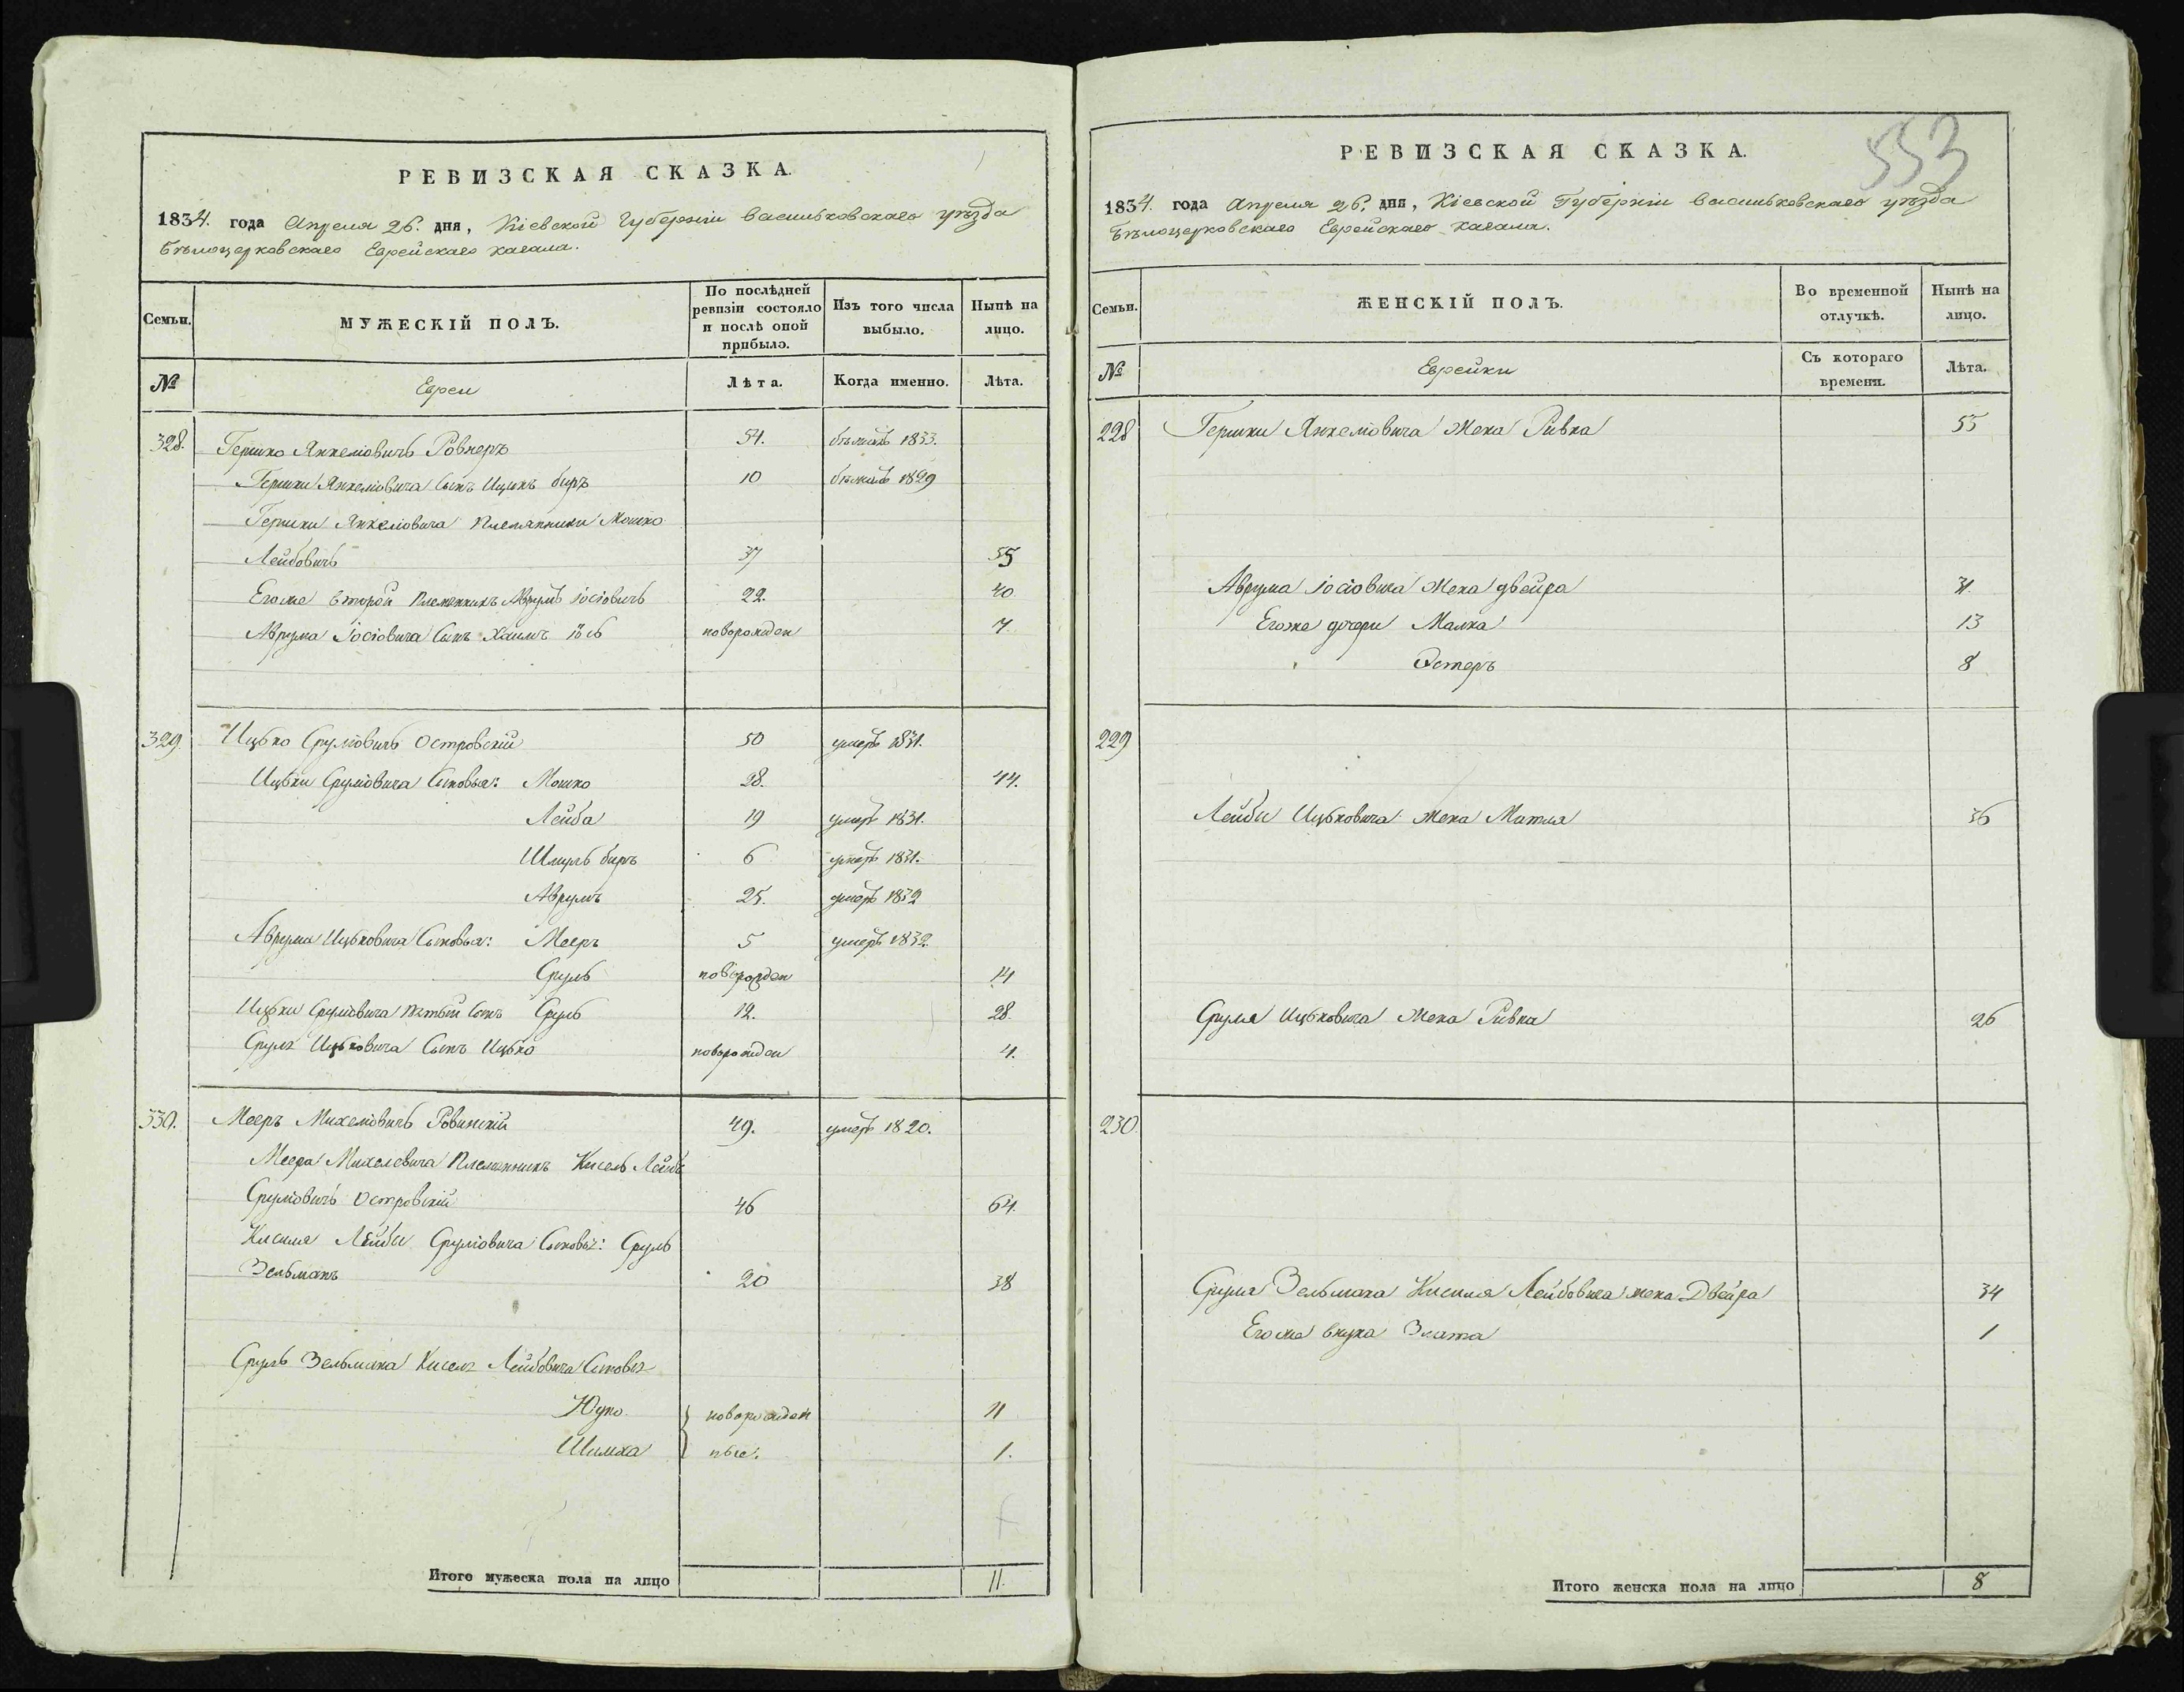 РЕВИЗСКАЯ СКАЗКА.
1834. года Апреля 26. дня, Кіевской Губерніи Васильковскаго уѣзда
Бѣлоцерковскаго Еврейскаго кагала.
Семьи.
МУЖЕСКІЙ ПОЛЪ.
По послѣдней
ревизіи состояло
и послѣ оной
прибыло.
Изъ того числа
выбыло.
Нынѣ на
лицо.
№
Евреи
Лѣта.
Когда именно.
Лѣта.
328. Гершко Янкеліовичъ Ровнеръ 54. 1833.
Гершки Янкеліовича Сынъ Ицикъ беръ 10 1829
Гершки Янкеліовича племянники Мошко
Лейбовичъ 37 55
Егоже второй племенникъ Аврумъ Іосіовичъ 22. 40
Аврума Іосіовича Сынъ Хаимъ Іось новорожден 7
329. Ицько Сруліовичъ Островскій 50 умеръ 1831.
Ицьки Сруліовича Сыновья: Мошко 28. 44.
Лейба 19 умеръ 1831.
Шмуль беръ 6 умеръ 1831.
Аврумъ 25. умеръ 1832
Аврума Ицьковича Сыновья: Мееръ 5 умеръ 1832.
Сруль новорожден 14
Ицьки Сруліовича пятый сынъ Сруль 12. 28.
Сруля Ицьковича Сынъ Ицько новорожден 4.
330. Мееръ Михеліовичъ Ровинскій 49. умеръ 1820.
Меера Михелевича племенникъ Кисель Лейба
Сруліовичъ Островскій 46 64.
Кисиля Лейби Сруліовича Сыновья: Сруль
Зельманъ 20 38
Сруль Зельмана Киселя Лейбовича Сыновья
Юдко } новорожден 11
Шимха ные. 1.
Итого мужеска пола на лицо 11.
553
РЕВИЗСКАЯ СКАЗКА.
1834. года Апреля 26. дня, Кіевской Губерніи Васильковскаго уѣзда
Бѣлоцерковскаго Еврейскаго кагала.
Семьи.
ЖЕНСКІЙ ПОЛЪ.
Во временной
отлучкѣ.
Нынѣ на
лицо.
№
Еврейки
Съ котораго
времени.
Лѣта.
228 Гершки Янкеліовича жена Ривка 55
Аврума Іосіовича жена двейра 31.
Егоже дочери Малка 13
Эстеръ 8
229
Лейби Ицьковича жена Матля 36
Сруля Ицьковича жена Ривка 26
230
Сруля Зельмана Кисиля Лейбовича жена Двейра 34
Егоже внука Злата 1
Итого женска пола на лицо 8